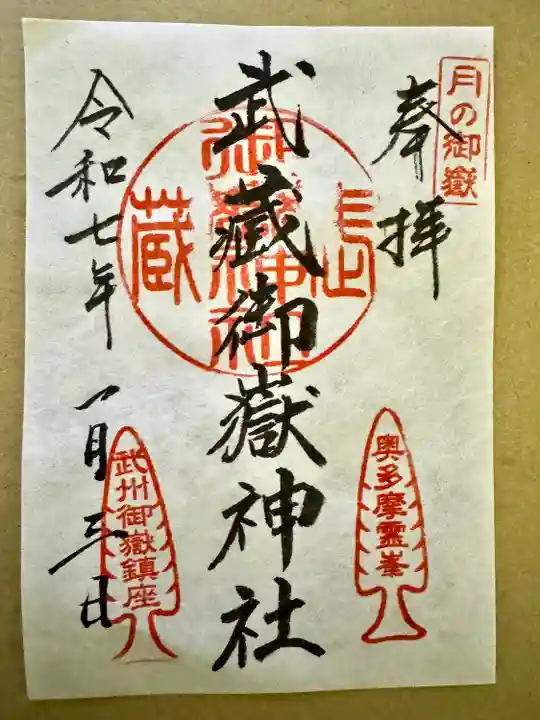 月の御嶽
奉拝
武蔵御嶽神社
奥多摩霊峯
令和七年
一月三日
武州御嶽鎮座